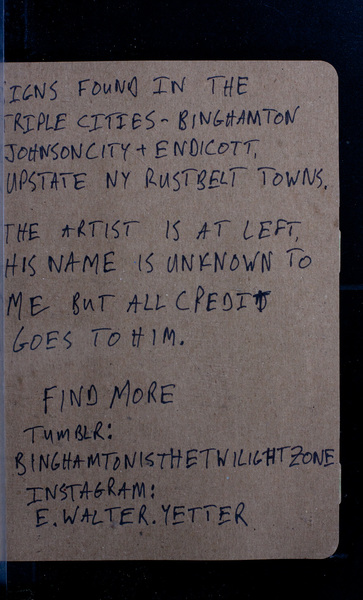 SIGNS FOUND IN THE
TRIPLE CITIES - BINGHAMTON
JOHNSONCITY + ENDICOTT,
UPSTATE NY RUSTBELT TOWNS.
THE ARTIST IS AT LEFT,
HIS NAME IS UNKNOWN TO
ME BUT ALL CREDIT
GOES TO HIM.
FIND MORE
TUMBLR:
BINGHAMTONISTHETWILIGHTZONE
INSTAGRAM:
E.WALTER.YETTER